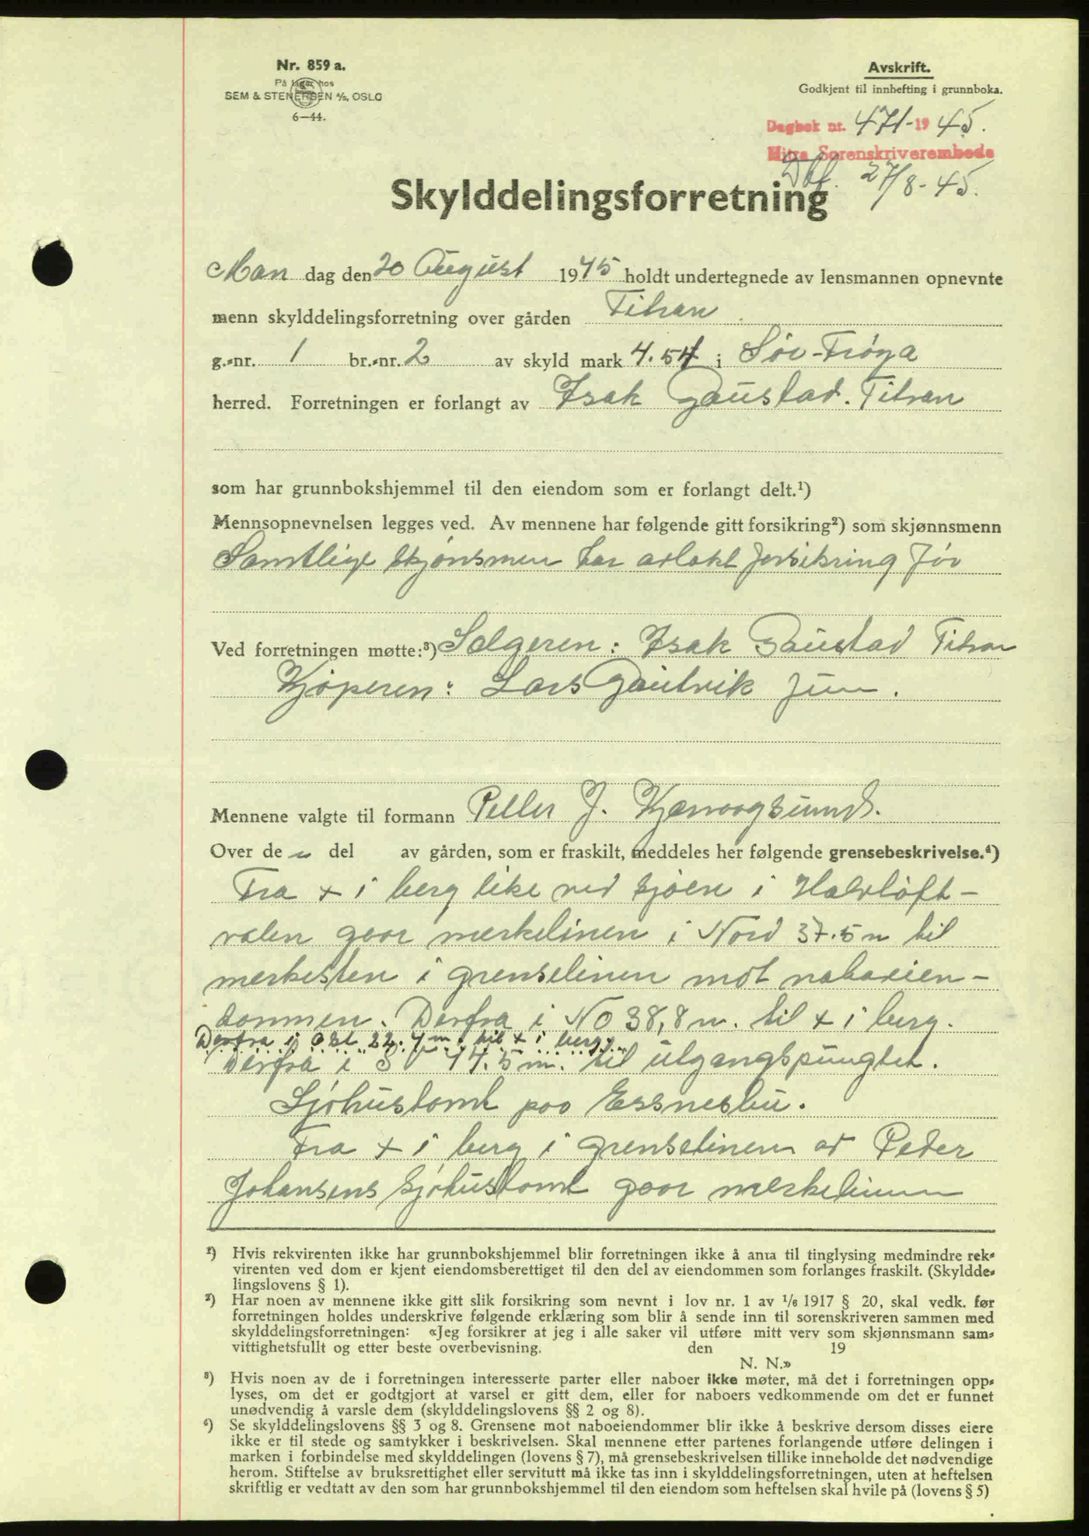 Nr. 859 a.
På lager hos
SEM & STENERSEN A/S, OSLO
6—44.
Avskrift.
Godkjent til innhefting i grunnboka.
Dagbok nr. 471-1945.
Hitra Sorenskriverembede
Dbf. 27/8-45.
Skylddelingsforretning
Man dag den 20 August 1945 holdt undertegnede av lensmannen opnevnte
menn skylddelingsforretning over gården Titran
g.-nr. 1 br.-nr. 2 av skyld mark 4.54 i Sør-Frøya
herred. Forretningen er forlangt av Isak Gaustad. Titran
som har grunnbokshjemmel til den eiendom som er forlangt delt.¹)
Mennsopnevnelsen legges ved. Av mennene har følgende gitt forsikring²) som skjønnsmenn
Samtlige skjønsmen har avlakt forsikring før
Ved forretningen møtte:³) Selgeren: Isak Gaustad Titran
Kjøperen: Lars Gautvik jun.
Mennene valgte til formann Petter J. Kjervågsund.
Over de n del av gården, som er fraskilt, meddeles her følgende grensebeskrivelse.⁴)
Fra + i berg like ved sjøen i Halvløft-
valen gaar merkelinen i Nord 37.5 m til
merkesten i grenselinen mot naboeien-
dommen. Derfra i NO 38,8 m. til + i berg.
Derfra i Øst 22.4 m. til + i berg.
Derfra i S 17.5 m. til utgangspungtet.
Sjøhustomt paa Essnesbu.
Fra + i berg i grenselinen av Peder
Johansens Sjøhustomt gaar merkelinen
¹) Hvis rekvirenten ikke har grunnbokshjemmel blir forretningen ikke å anta til tinglysing medmindre rek-
virenten ved dom er kjent eiendomsberettiget til den del av eiendommen som forlanges fraskilt. (Skyldde-
lingslovens § 1).
²) Har noen av mennene ikke gitt slik forsikring som nevnt i lov nr. 1 av 1/6 1917 § 20, skal vedk. før
forretningen holdes underskrive følgende erklæring som blir å sende inn til sorenskriveren sammen med
skylddelingsforretningen: «Jeg forsikrer at jeg i alle saker vil utføre mitt verv som skjønnsmann sam-
vittighetsfullt og etter beste overbevisning. den 19
N. N.»
³) Hvis noen av de i forretningen interesserte parter eller naboer ikke møter, må det i forretningen opp-
lyses, om det er godtgjort at varsel er gitt dem, eller for naboers vedkommende om det er funnet
unødvendig å varsle dem (skylddelingslovens §§ 2 og 8).
⁴) Se skylddelingslovens §§ 3 og 8. Grensene mot naboeiendommer blir ikke å beskrive dersom disses eiere
ikke er til stede og samtykker i beskrivelsen. Skal mennene etter partenes forlangende utføre delingen i
marken i forbindelse med skylddelingen (lovens § 7), må grensebeskrivelsen tillike inneholde det nødvendige
herom. Stiftelse av bruksrettighet eller servitutt må ikke tas inn i skylddelingsforretningen, uten at heftelsen
skriftlig er vedtatt av den som har grunnbokshjemmel til den eiendom som heftelsen skal hvile på (lovens § 5)